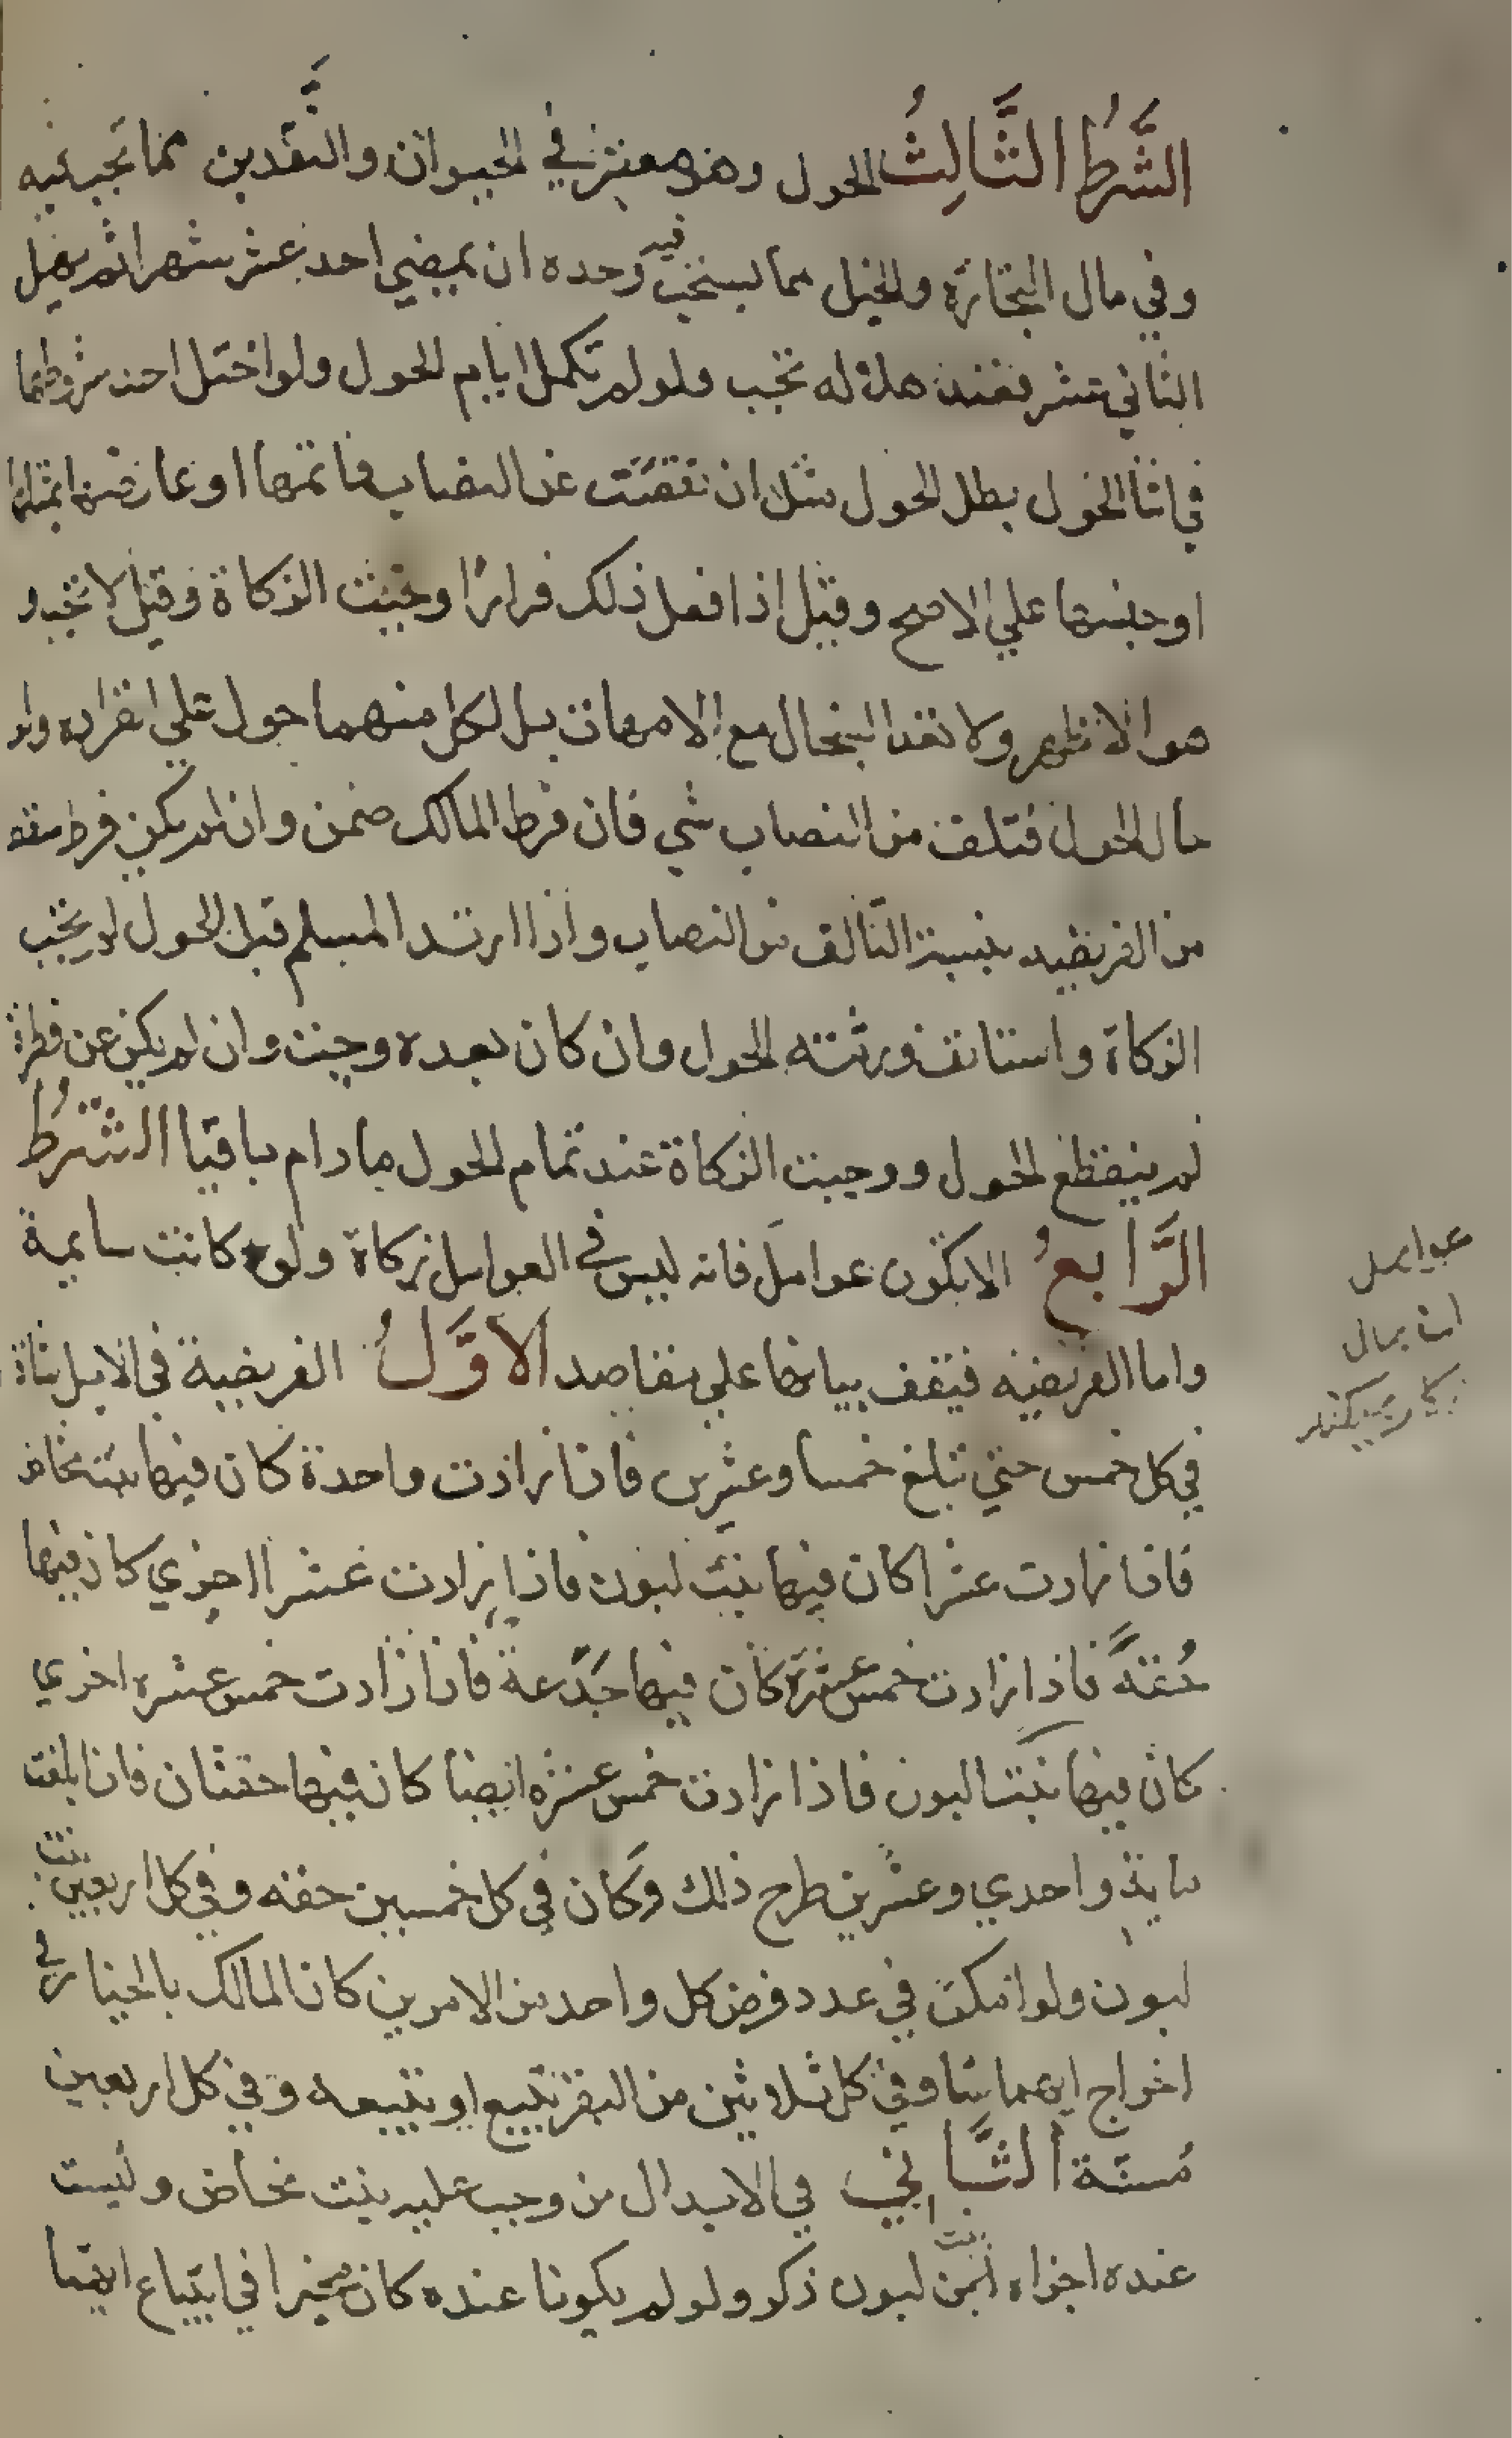 الشَّرطُ الثَّالِثُ الحول وهو معتبر في الحيوان والنَّقدين مما تجب فيه
وفي مال التجارة والخيل مما يستحب فيه وحده ان يمضي احد عشر شهرا ثم يهل
الثاني عشر فعند هلاله تجب ولو لم تكمل ايام الحول ولو اختل احد شروطها
في اثنا الحول بطل الحول مثل ان نقصت عن النصاب فاتمها او عاوضها بمثلها
او جنسها علي الاصح وقيل اذا فعل ذلك فرارًا وجبت الزكاة وقيل لا تجب و
هو الاظهر ولا تعد السخال مع الامهات بل لكل منهما حول علي انفراده ولو
حال الحول فتلف من النصاب شي فان فرط المالك ضمن وان لم يكن فرط سقط
من الفريضه بنسبة التالف من النصاب واذا ارتد المسلم قبل الحول لم تجب
الزكاة واستانف ورثته الحول وان كان بعده وجبت وان لم يكن عن فطرة
لم ينقطع الحول ووجبت الزكاة عند تمام الحول ما دام باقيا الشَّرطُ
الرَّابعُ الا يكون عوامل فانه ليس في العوامل زكاة ولو كانت سايمة
واما الفريضه فيقف بيانها علي مقاصد الاوَّلُ الفريضة في الابل شاة
في كل خمس حتي تبلغ خمسا وعشرين فاذا زادت واحدة كان فيها بنت مخاض
فاذا زادت عشرا كان فيها بنت لبون فاذا زادت عشرا اخري كان فيها
حُقةً فاذا زادت خمس عشرة كان فيها جَذَعة فاذا زادت خمس عشره اخري
كان فيها بنتا لبون فاذا زادت خمس عشره ايضا كان فيها حقتان فاذا بلغت
ماية واحدي وعشرين طرح ذلك وكان في كل خمسين حقه وفي كل اربعين بنت
لبون ولو امكن في عدد فرض كل واحد من الامرين كان المالك بالخيار في
اخراج ايهما شا وفي كل ثلاثين من البقر تبيع او تبيعه وفي كل اربعين
مُسنَة الثَّاني في الابدال من وجب عليه بنت مخاض وليست
عنده اجزاه ابن لبون ذكر ولو لم يكونا عنده كان مخيرا في ابتياع ايهما
عوامل